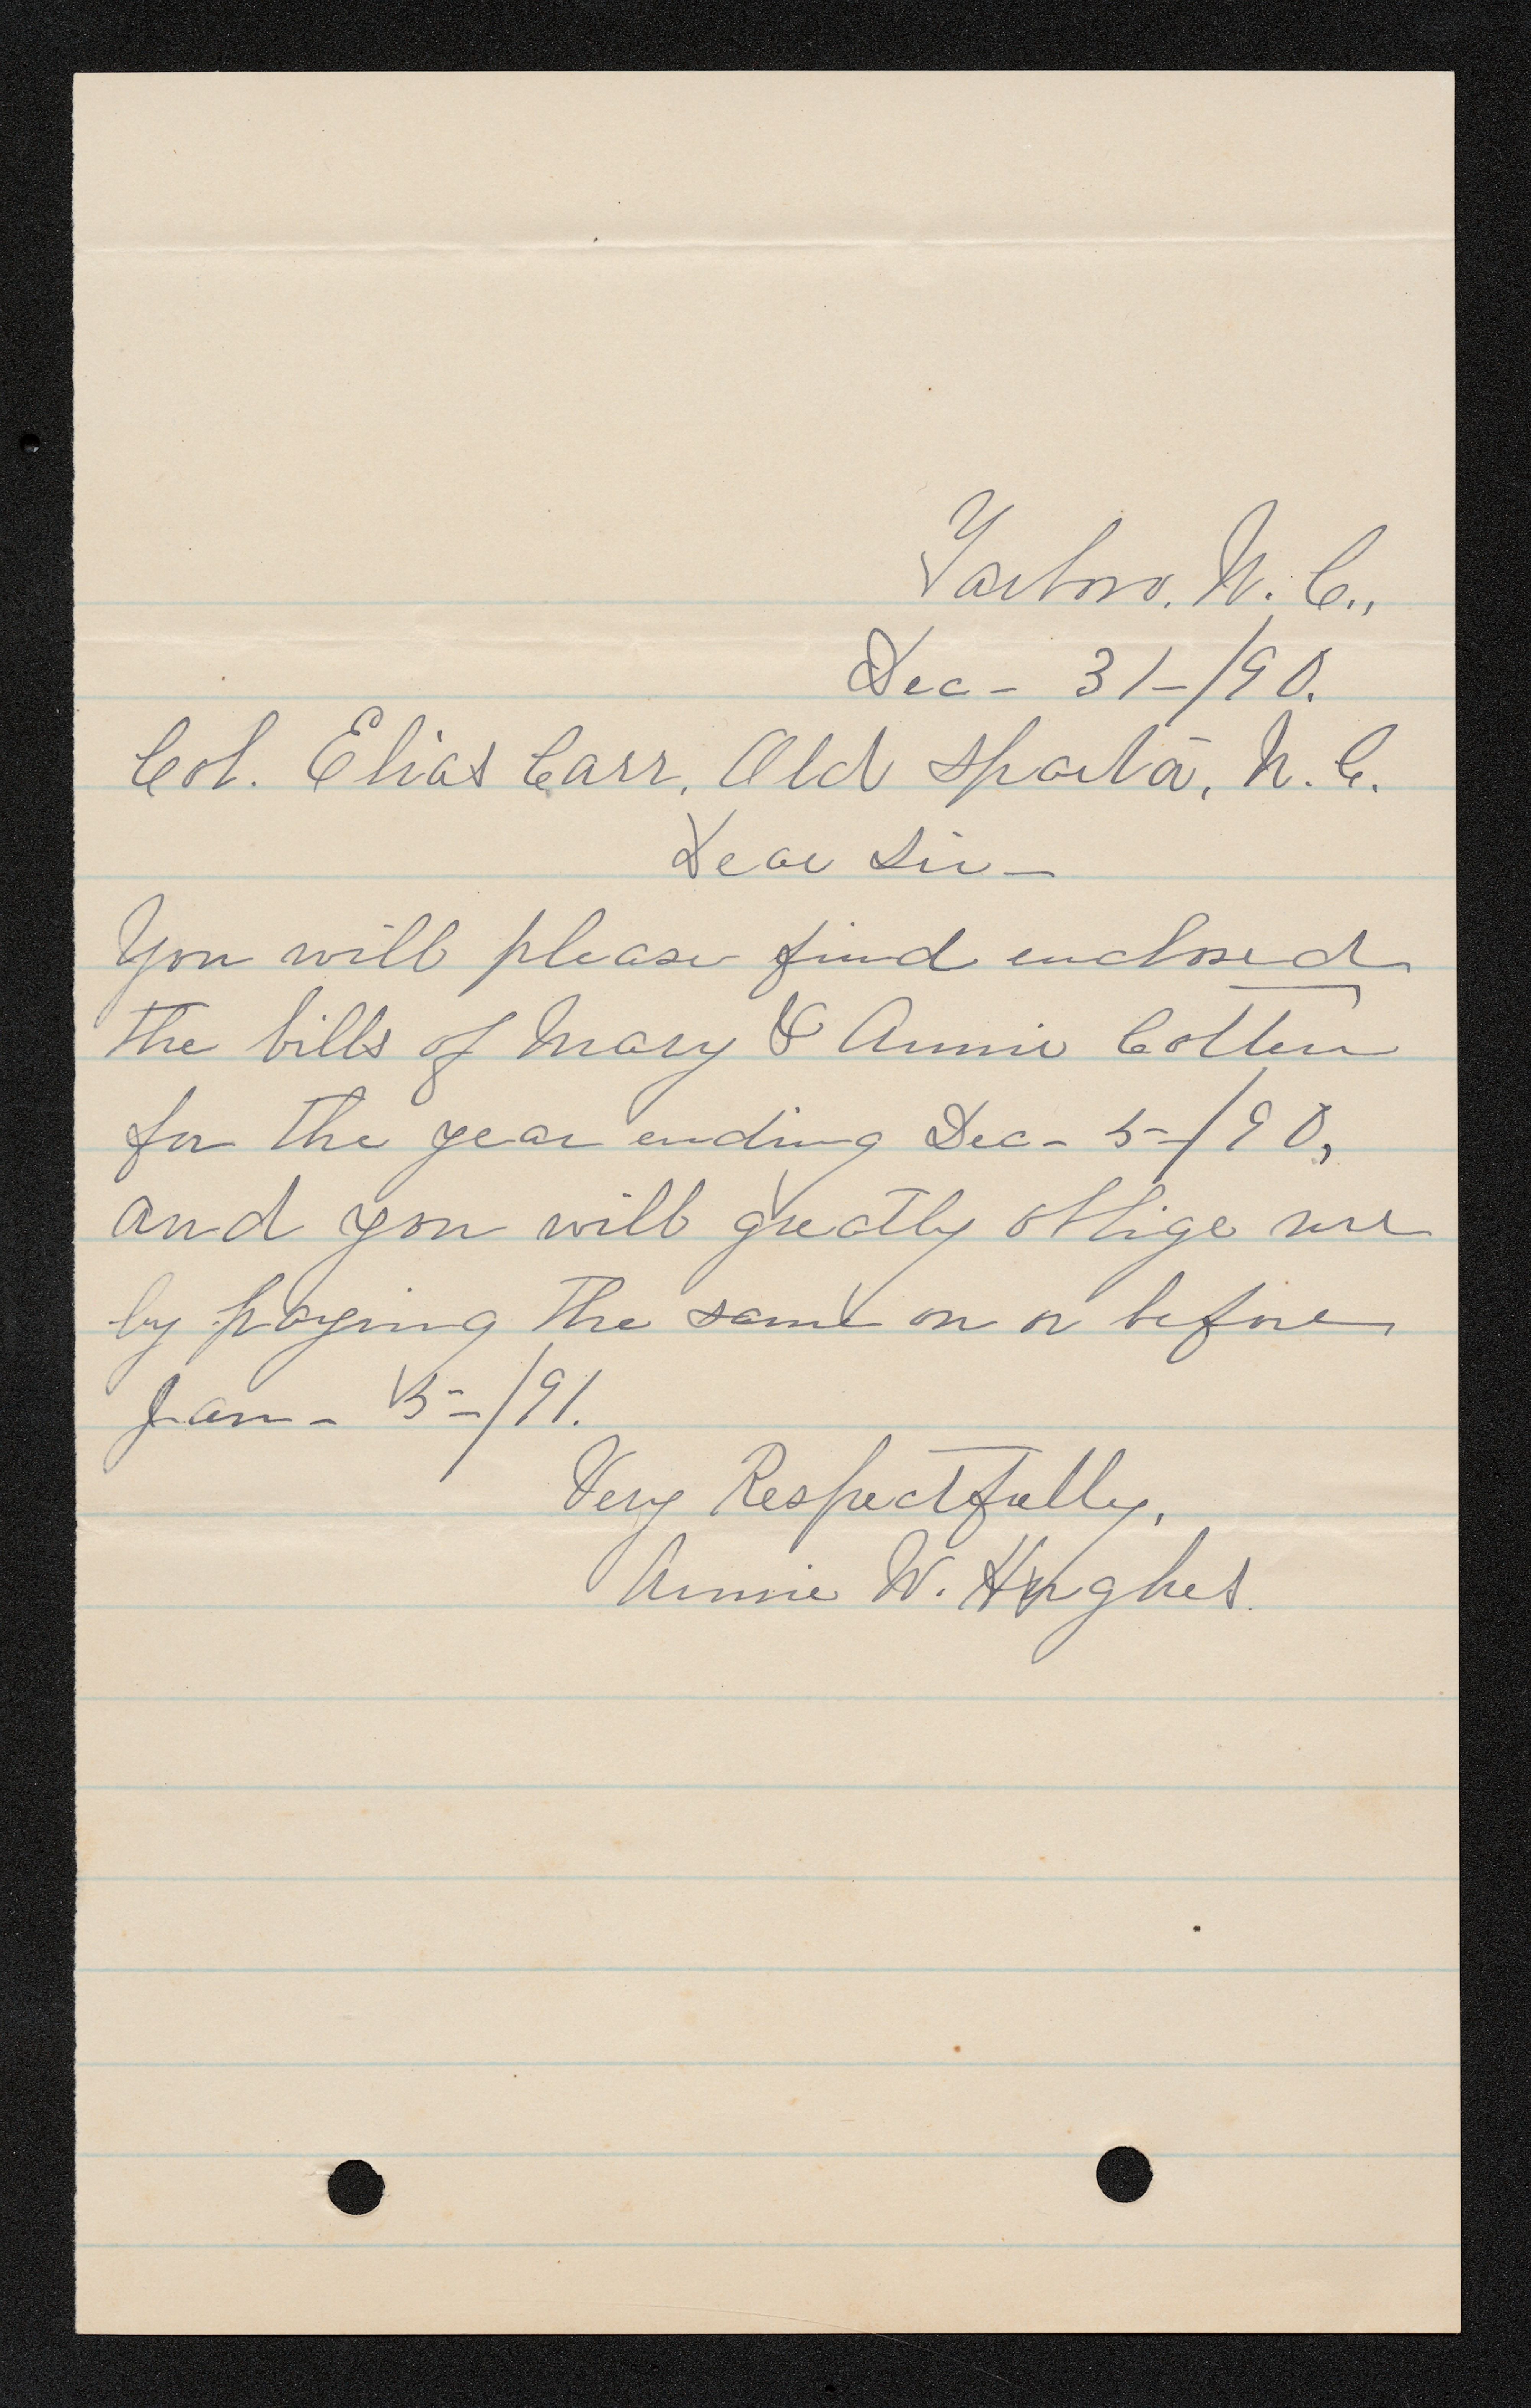 Tarboro, N. C.,
Dec - 31 - /90.
Col. Elias Carr, Old Sparta, N. C.
Dear Sir -
You will please find enclosed
the bills of Mary & Annie Cotten
for the year ending Dec - 5 - /90,
and you will greatly oblige me
by paying the same on or before
Jan - 5 - /91.
Very Respectfully,
Annie W. Hughes.